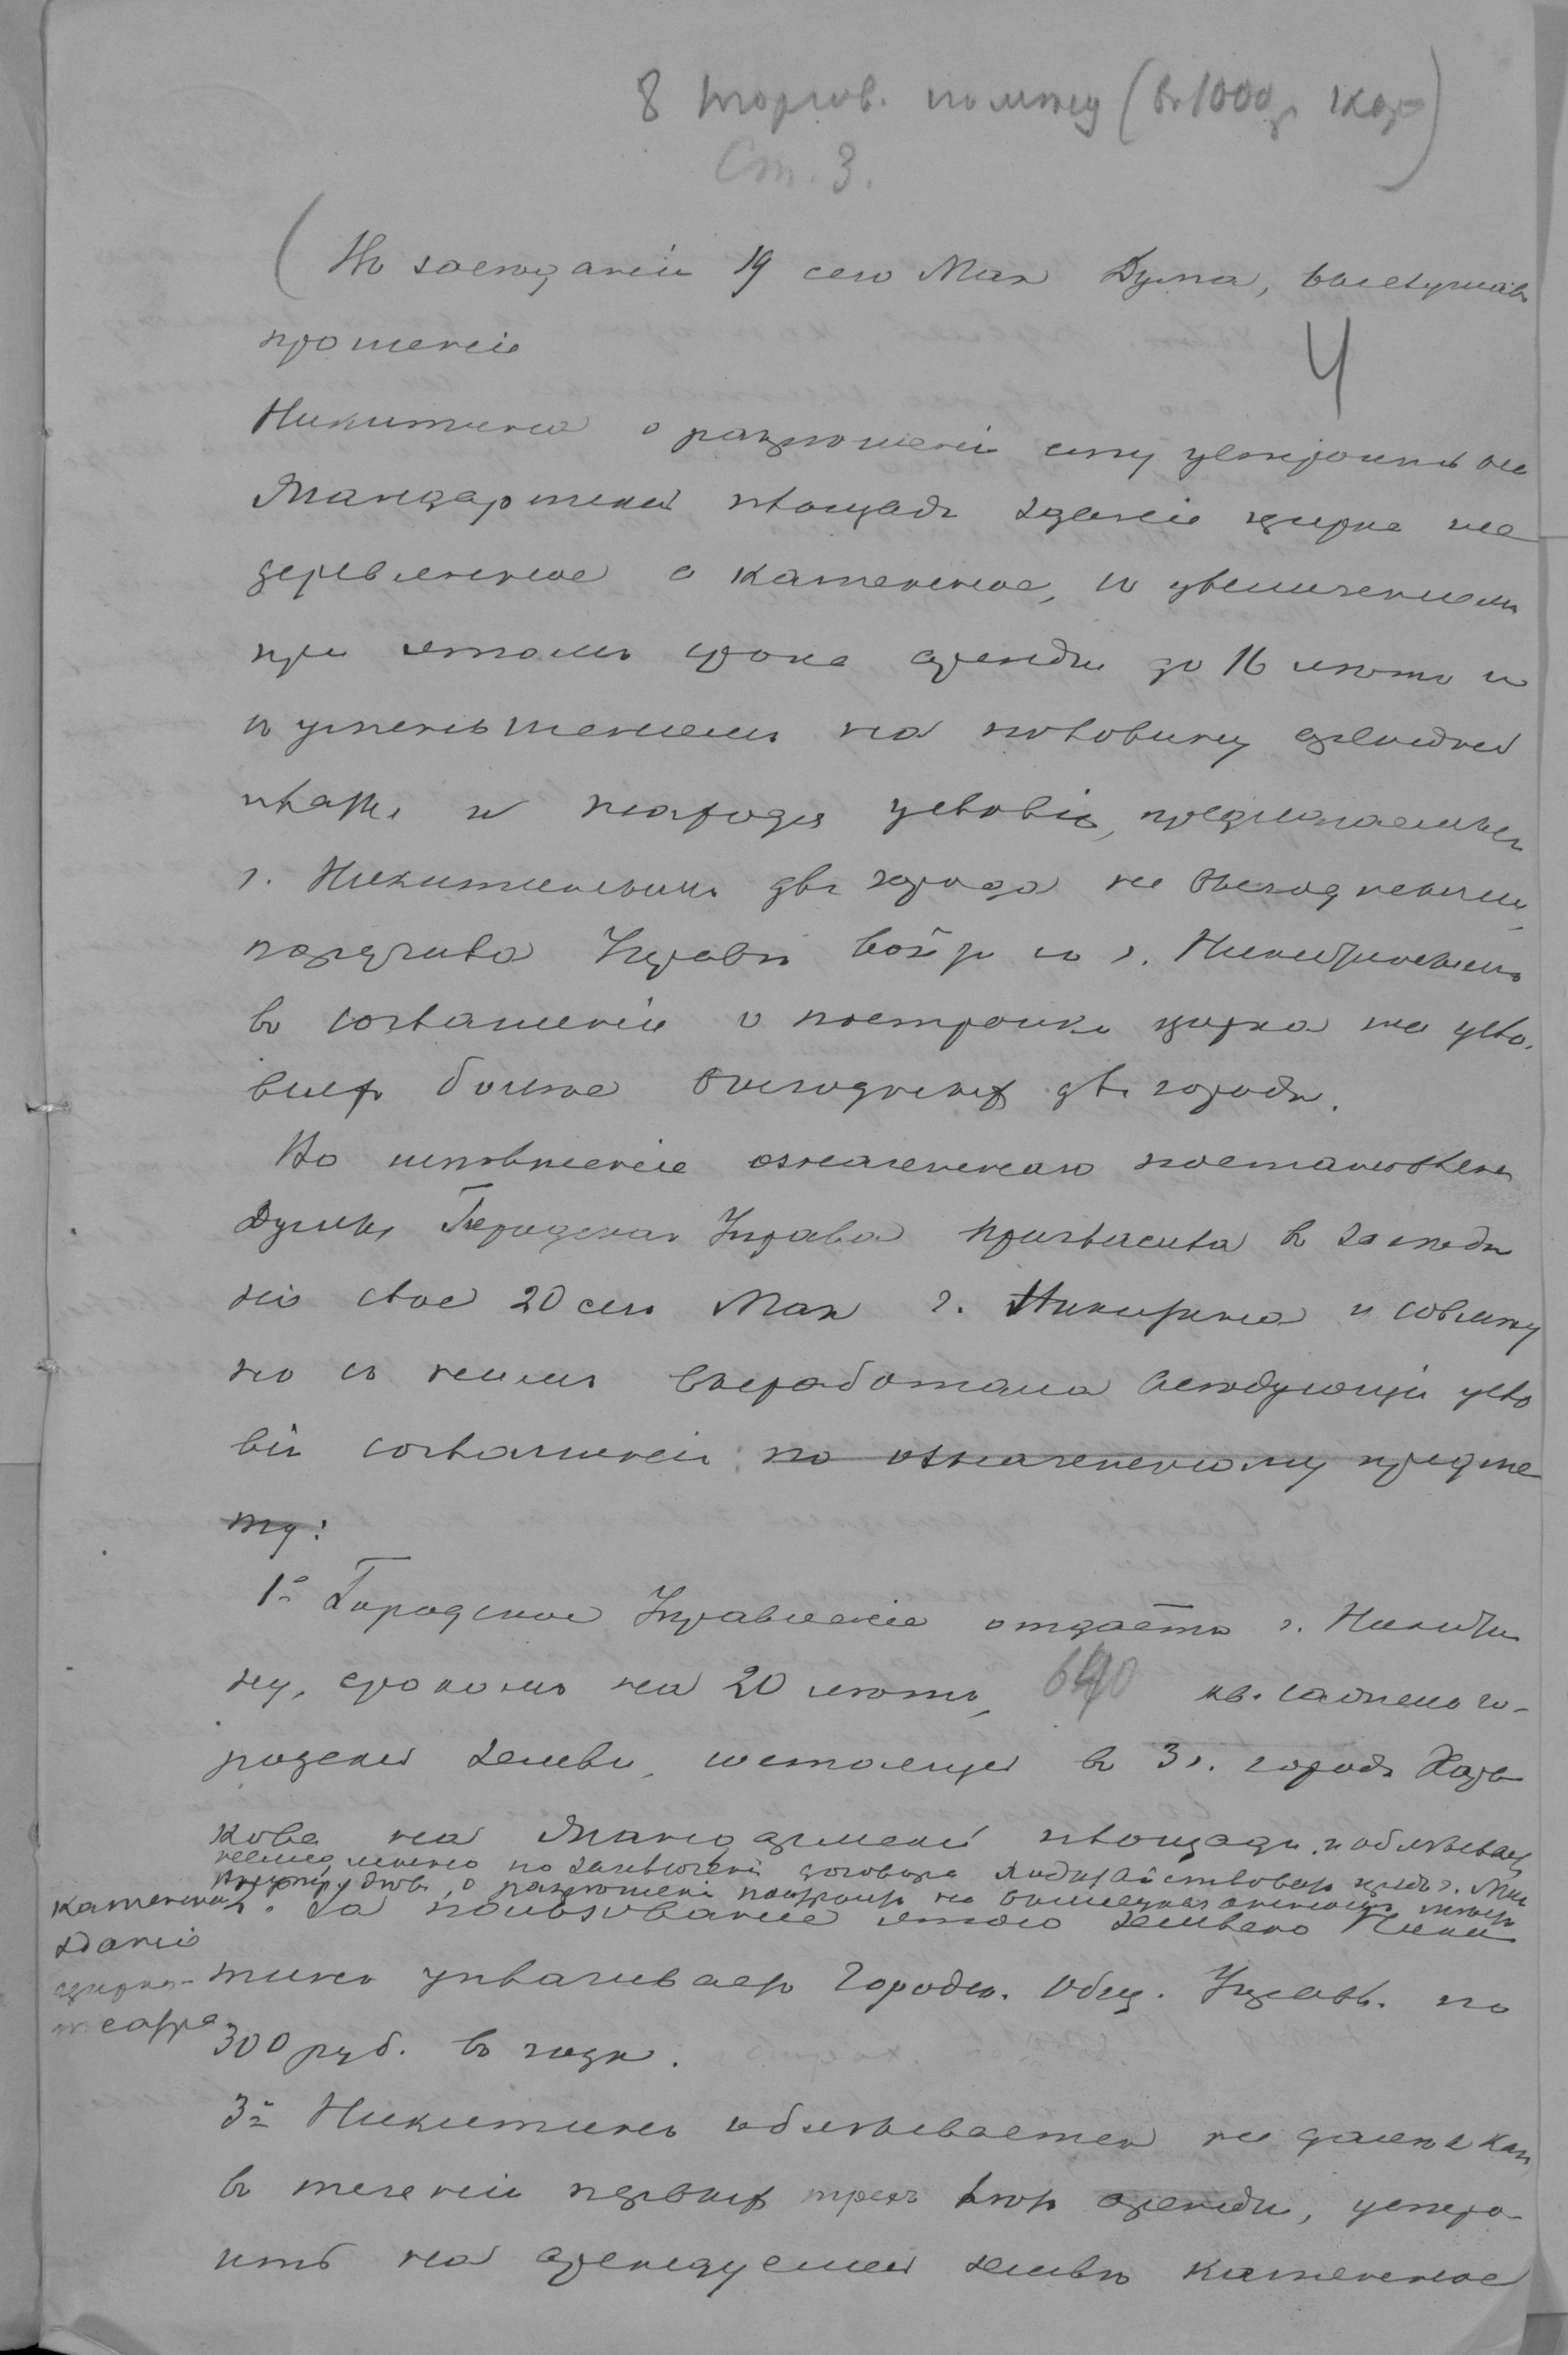 8 торгов. по между (въ 1000 )
Ст. 3.
Въ заседаніи 19 сего Мая Дума, выслушавъ
прошеніе
4
Никитина о разрѣшеніи ему устроить на
Жандармской площади зданіе цирка не
деревянное а каменное, съ увеличеніемъ
при этомъ срока аренды до 16 лѣтъ и
съ уменьшеніемъ на половину арендной
платы и находя условія, предлагаемыя
г. Никитинымъ для города не выгодными,
поручила Управѣ войти съ г. Никитинымъ
въ соглашеніе о постройкѣ цирка на усло-
віяхъ болѣе выгодныхъ для города.
Во исполненіе означеннаго постановленія
Думы, Городская Управа пригласила въ заседа
ніе свое 20 сего Мая г. Никитина и совмѣст
но съ нимъ выработала слѣдующія усло
вія соглашенія: по означенному предме
ту:
1-е Городское Управленіе отдаетъ г. Никити
ну, срокомъ на 20 лѣтъ, 640 кв. саженъ го-
родской земли, состоящей въ 3 ч. города Харь
кова на Жандармской площади, и обязывается
немедленно по заключеніи договора ходатайствовать предъ г. Мин
о разрѣшеніи постройки на вышеуказанномъ
каменнаго
зданія
цирка-
театра
2. За пользованіе этою землею Ники
тинъ уплачиваетъ Городск. Общ. Управл. по
300 руб. въ годъ.
3-е Никитинъ обязывается не далѣе какъ
въ теченіи первыхъ трехъ лѣтъ аренды, устро-
ить на арендуемой землѣ каменное